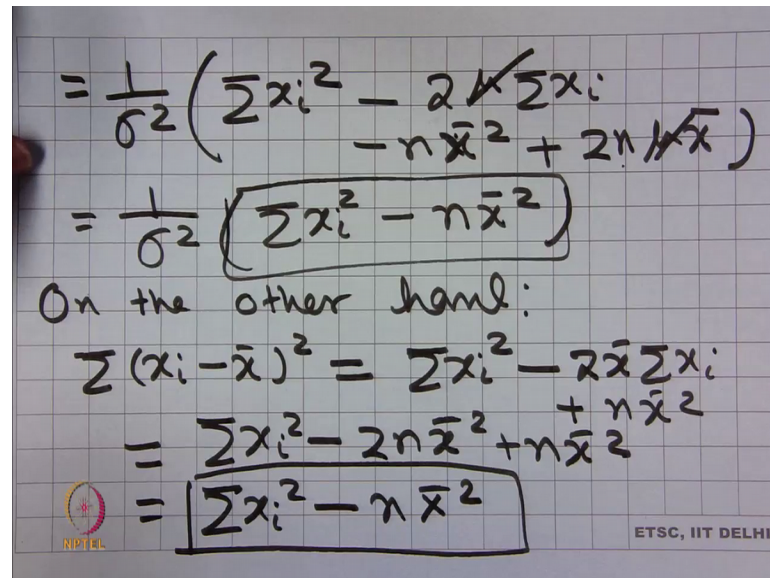 = 1/σ² ( Σxi² − 2μΣxi
− nx̄² + 2nμx̄ )
= 1/σ² ( Σxi² − nx̄² )
On the other hand:
Σ(xi − x̄)² = Σxi² − 2x̄Σxi
+ nx̄²
= Σxi² − 2nx̄² + nx̄²
= Σxi² − nx̄²
NPTEL
ETSC, IIT DELHI